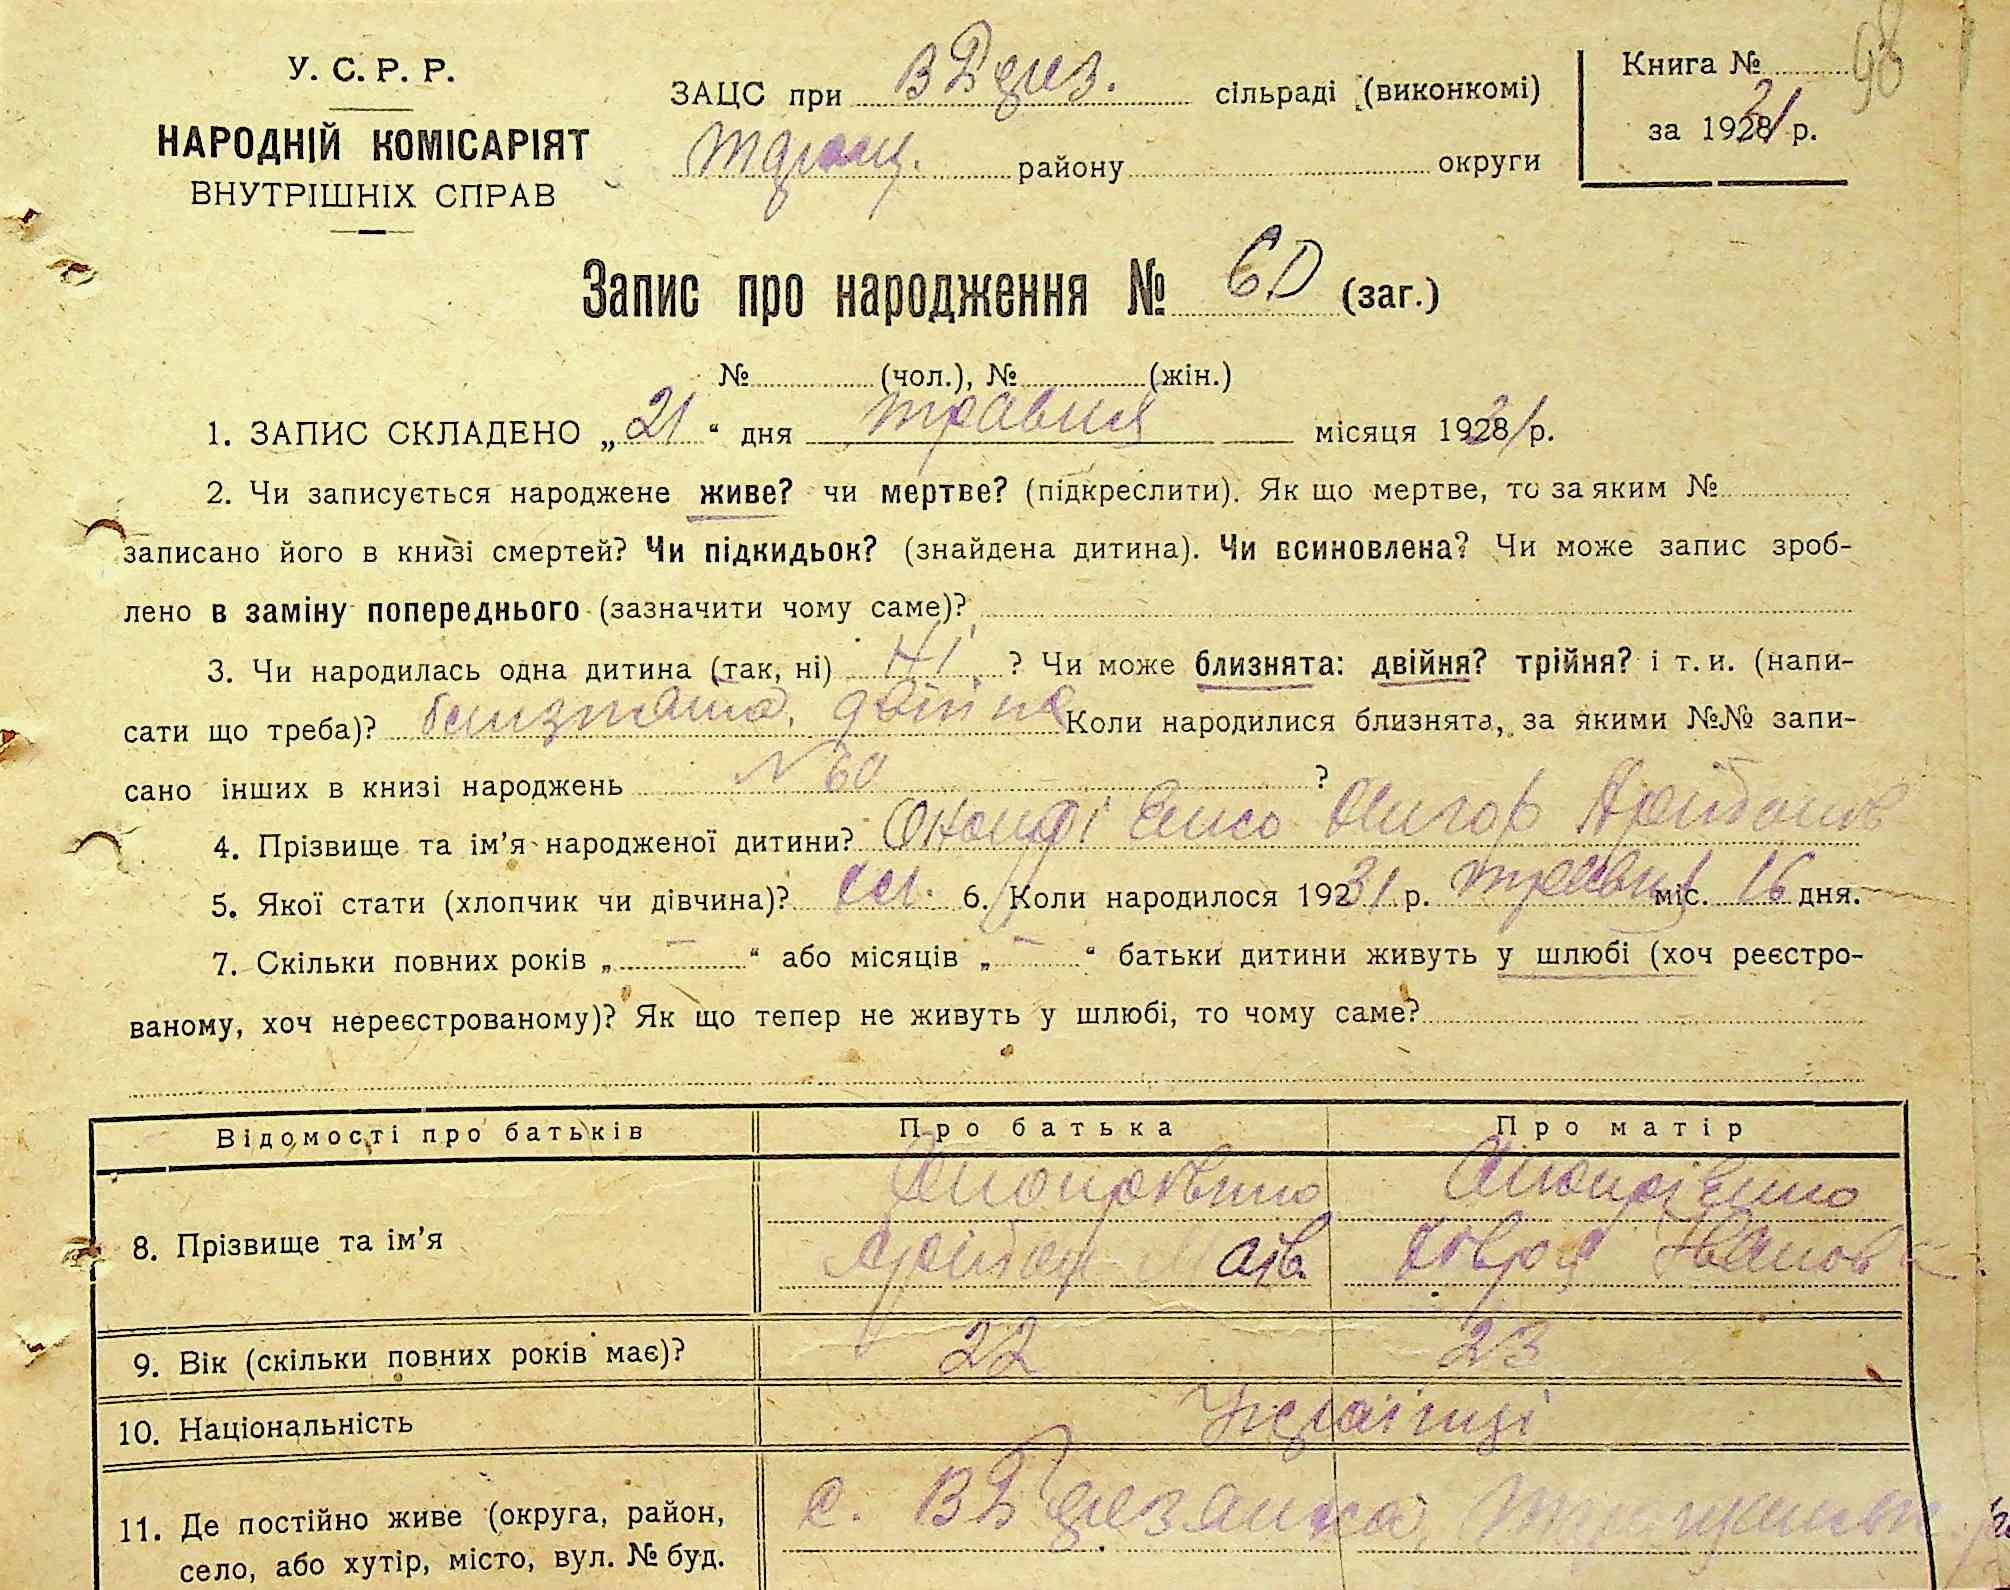 У. С. Р. Р.
НАРОДНІЙ КОМІСАРІЯТ
ВНУТРІШНІХ СПРАВ
ЗАЦС при В Берез. сільраді (виконкомі)
району округи
Книга №
98
за 1928 31 р.
Запис про народження № 60 (заг.)
№ (чол.), № (жін.)
1. ЗАПИС СКЛАДЕНО „21“ дня травня місяця 1928 31 р.
2. Чи записується народжене живе? чи мертве? (підкреслити). Як що мертве, то за яким №
записано його в книзі смертей? Чи підкидьок? (знайдена дитина). Чи всиновлена? Чи може запис зроб-
лено в заміну попереднього (зазначити чому саме)?
3. Чи народилась одна дитина (так, ні) Ні ? Чи може близнята: двійня? трійня? і т. и. (напи-
сати що треба)? близнята, двійня Коли народилися близнята, за якими №№ запи-
сано інших в книзі народжень N 60 ?
4. Прізвище та ім’я народженої дитини?
5. Якої стати (хлопчик чи дівчина)? хл. 6. Коли народилося 192 31 р. травня міс. 16 дня.
7. Скільки повних років „ — “ або місяців „ — “ батьки дитини живуть у шлюбі (хоч реєстро-
ваному, хоч нереєстрованому)? Як що тепер не живуть у шлюбі, то чому саме?
Відомості про батьків
Про батька
Про матір
8. Прізвище та ім’я
9. Вік (скільки повних років має)? 22 23
10. Національність Українці
11. Де постійно живе (округа, район,
село, або хутір, місто, вул. № буд.
с. В Березанка